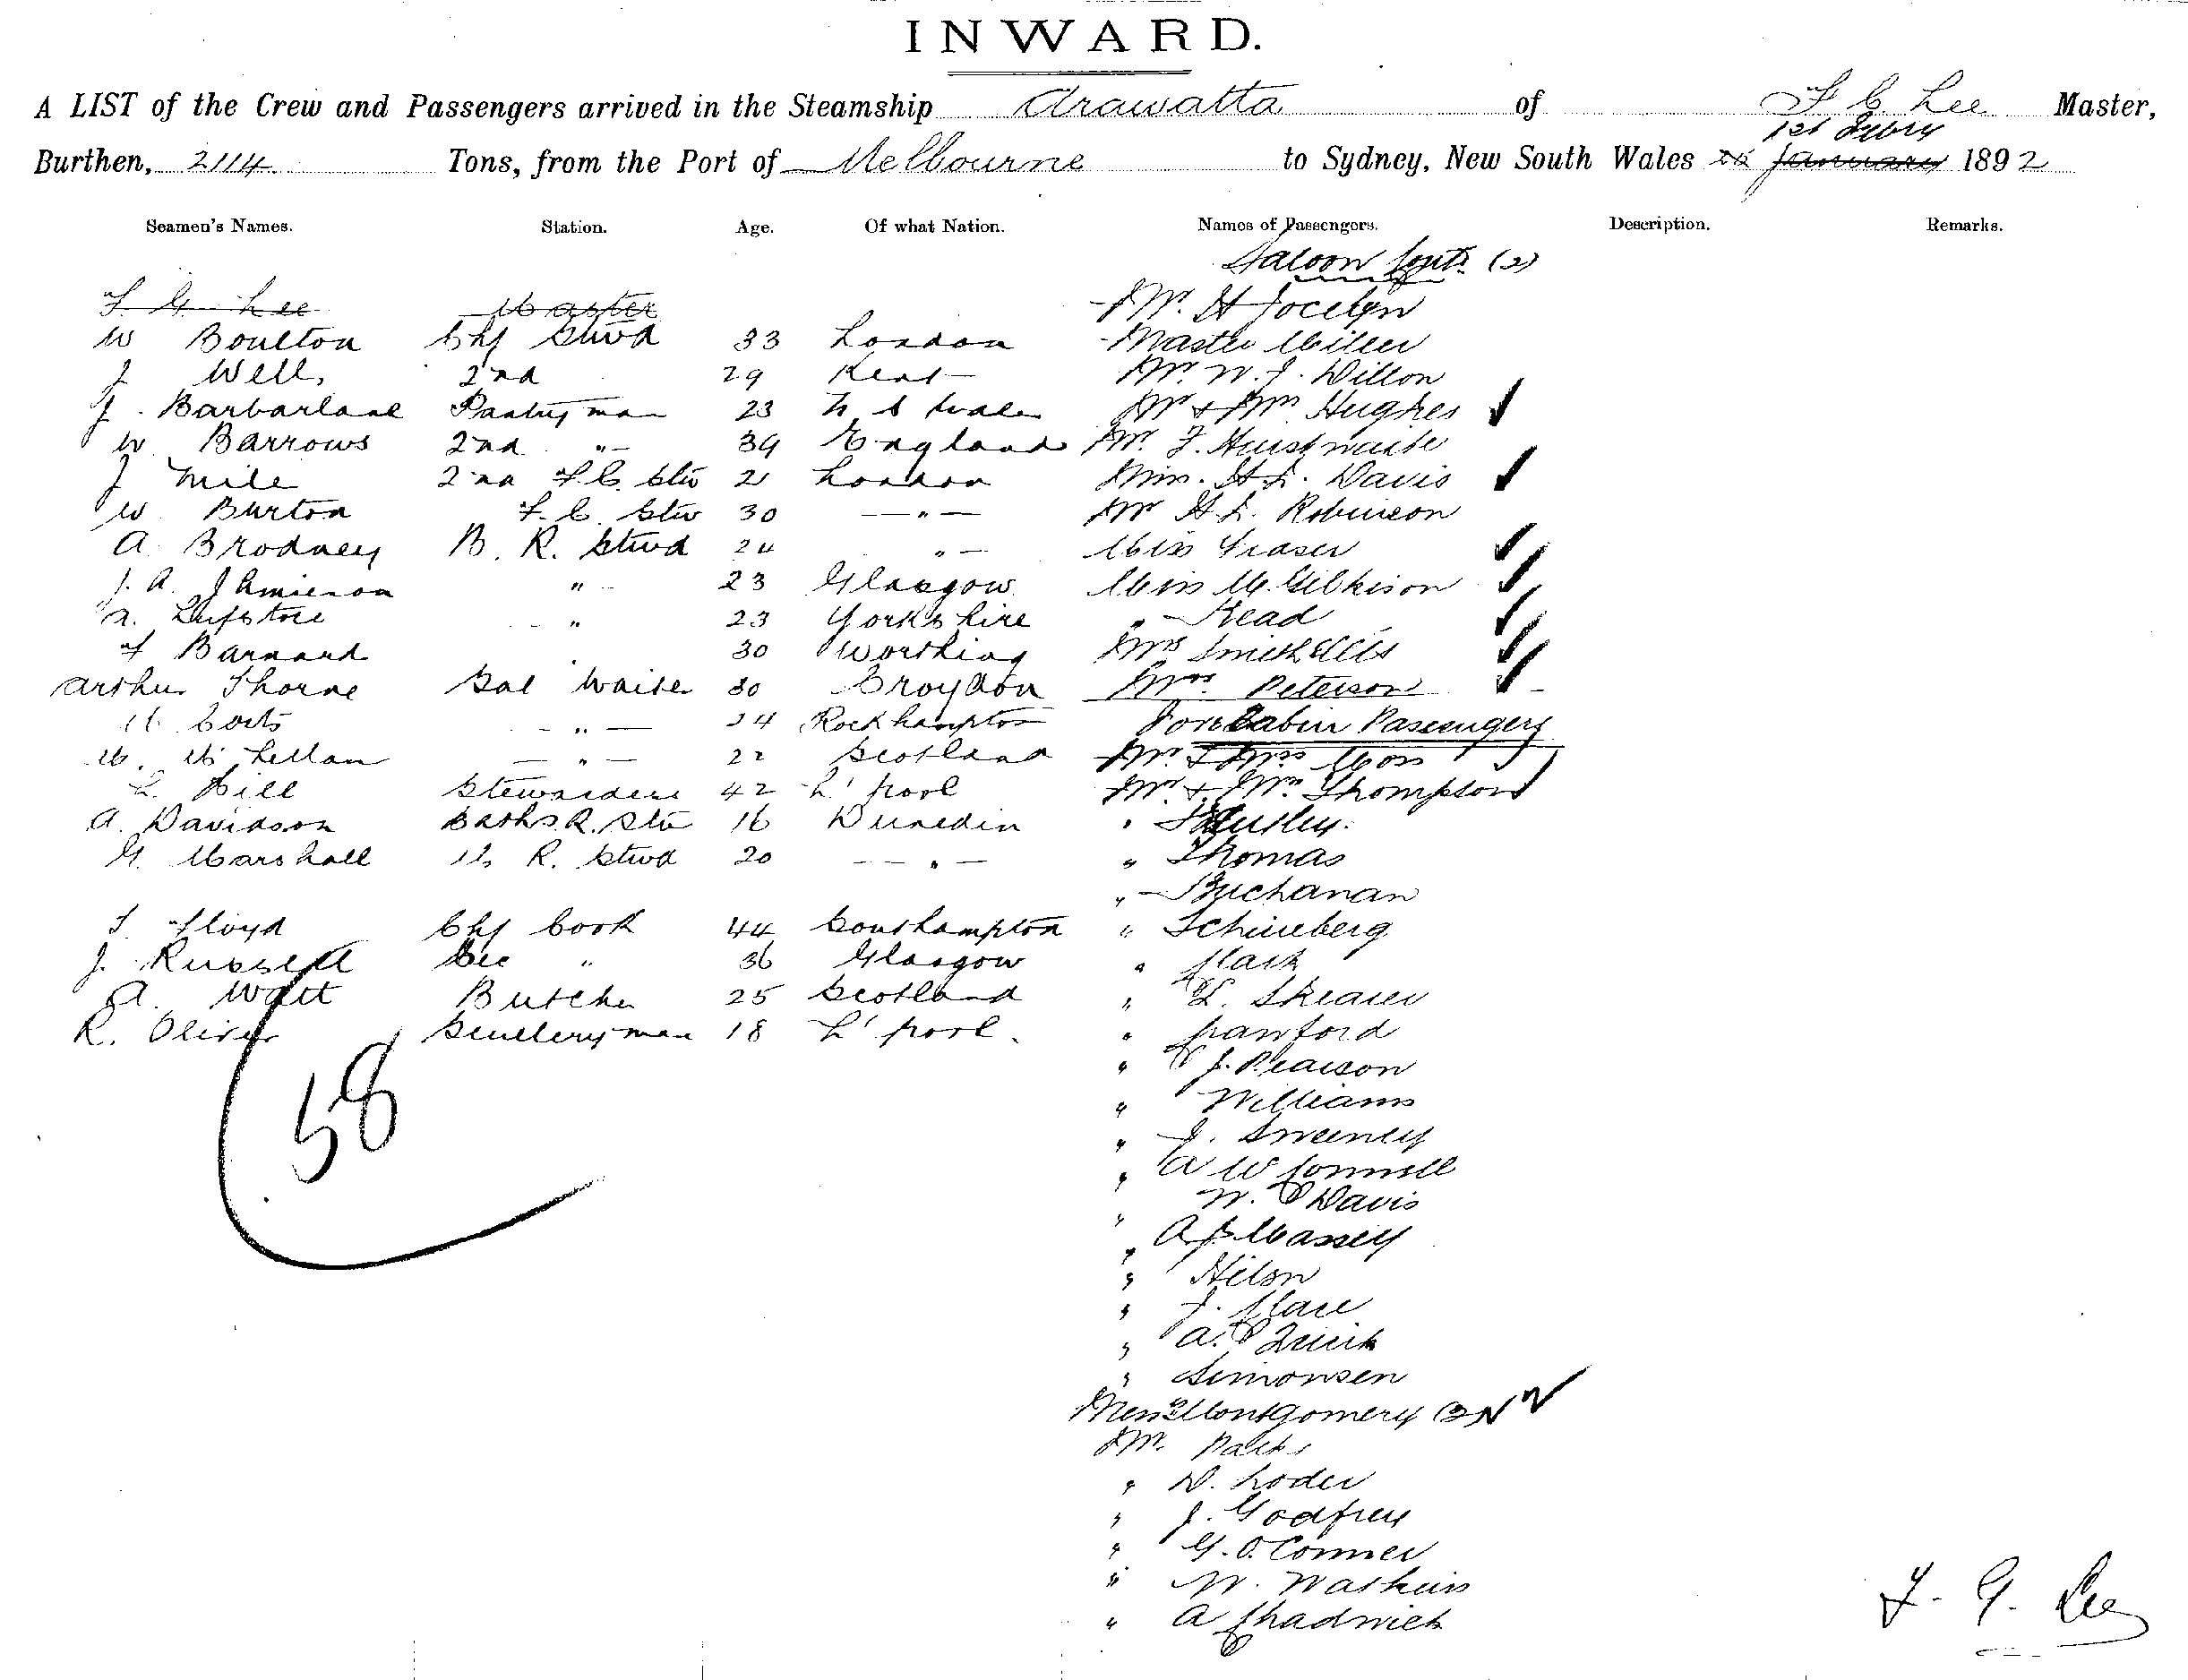 INWARD.
A LIST of the Crew and Passengers arrived in the Steamship Arawatta of F G Lee Master,
1st Febry
Burthen, 2114 Tons, from the Port of Melbourne to Sydney, New South Wales January 1892
Seamen's Names. Station. Age. Of what Nation. Names of Passengers. Description. Remarks.
Saloon Contd. (2)
F G Lee Master Mr. H Jocelyn
W Boulton Chf Stwd 33 London Master Miller
J Wells 2nd 29 Kent Mr. W. J. Dillon
J. Barbarlane Pantryman 23 N S Wales Mr & Mrs Hughes
W Barrows 2nd " 39 England Mr. J. Hurstwaite
J Mile 2nd F.C. Stw 21 London Miss. H. L. Davis
W Burton F.C. Stw 30 " Mr H. L. Robinson
A. Brodney B. R. Stwd 24 " Miss Fraser
J. A. Jamieson " 23 Glasgow Miss M. Gilkison
A. " 23 Yorkshire " Read
F Barnard 30 Worthing Mrs
Arthur Thorne Sal Waiter 30 Croydon Mrs. Peterson
24 Rockhampton Fore Cabin Passengers
M. McLellan " 22 Scotland Mr. & Mrs Moss
L. Hill Stewardess 42 L'pool Mr. & Mrs. Thompson
A. Davidson Baths R. Stw 16 Dunedin "
G. Marshall M R. Stwd 20 " " Thomas
" Buchanan
T. Floyd Chf Cook 44 Southampton " Schineberg
J. Russell Sec " 36 Glasgow " Clark
A. Watt Butcher 25 Scotland " L. Shearer
R. Oliver Scullery man 18 L'pool. " Crawford
58
" J. Pearson
" Williams
" J. Sweeney
" A W Connell
" W. Davis
" A J Massey
" Hilson
" J. Clare
" A. Quirk
" Simonsen
Messrs Montgomery (3)
Mr. Parks
" D. Loder
" J. Godfrey
" G. O. Conner
" W. Watkins
" A Chadwick
F. G. Lee